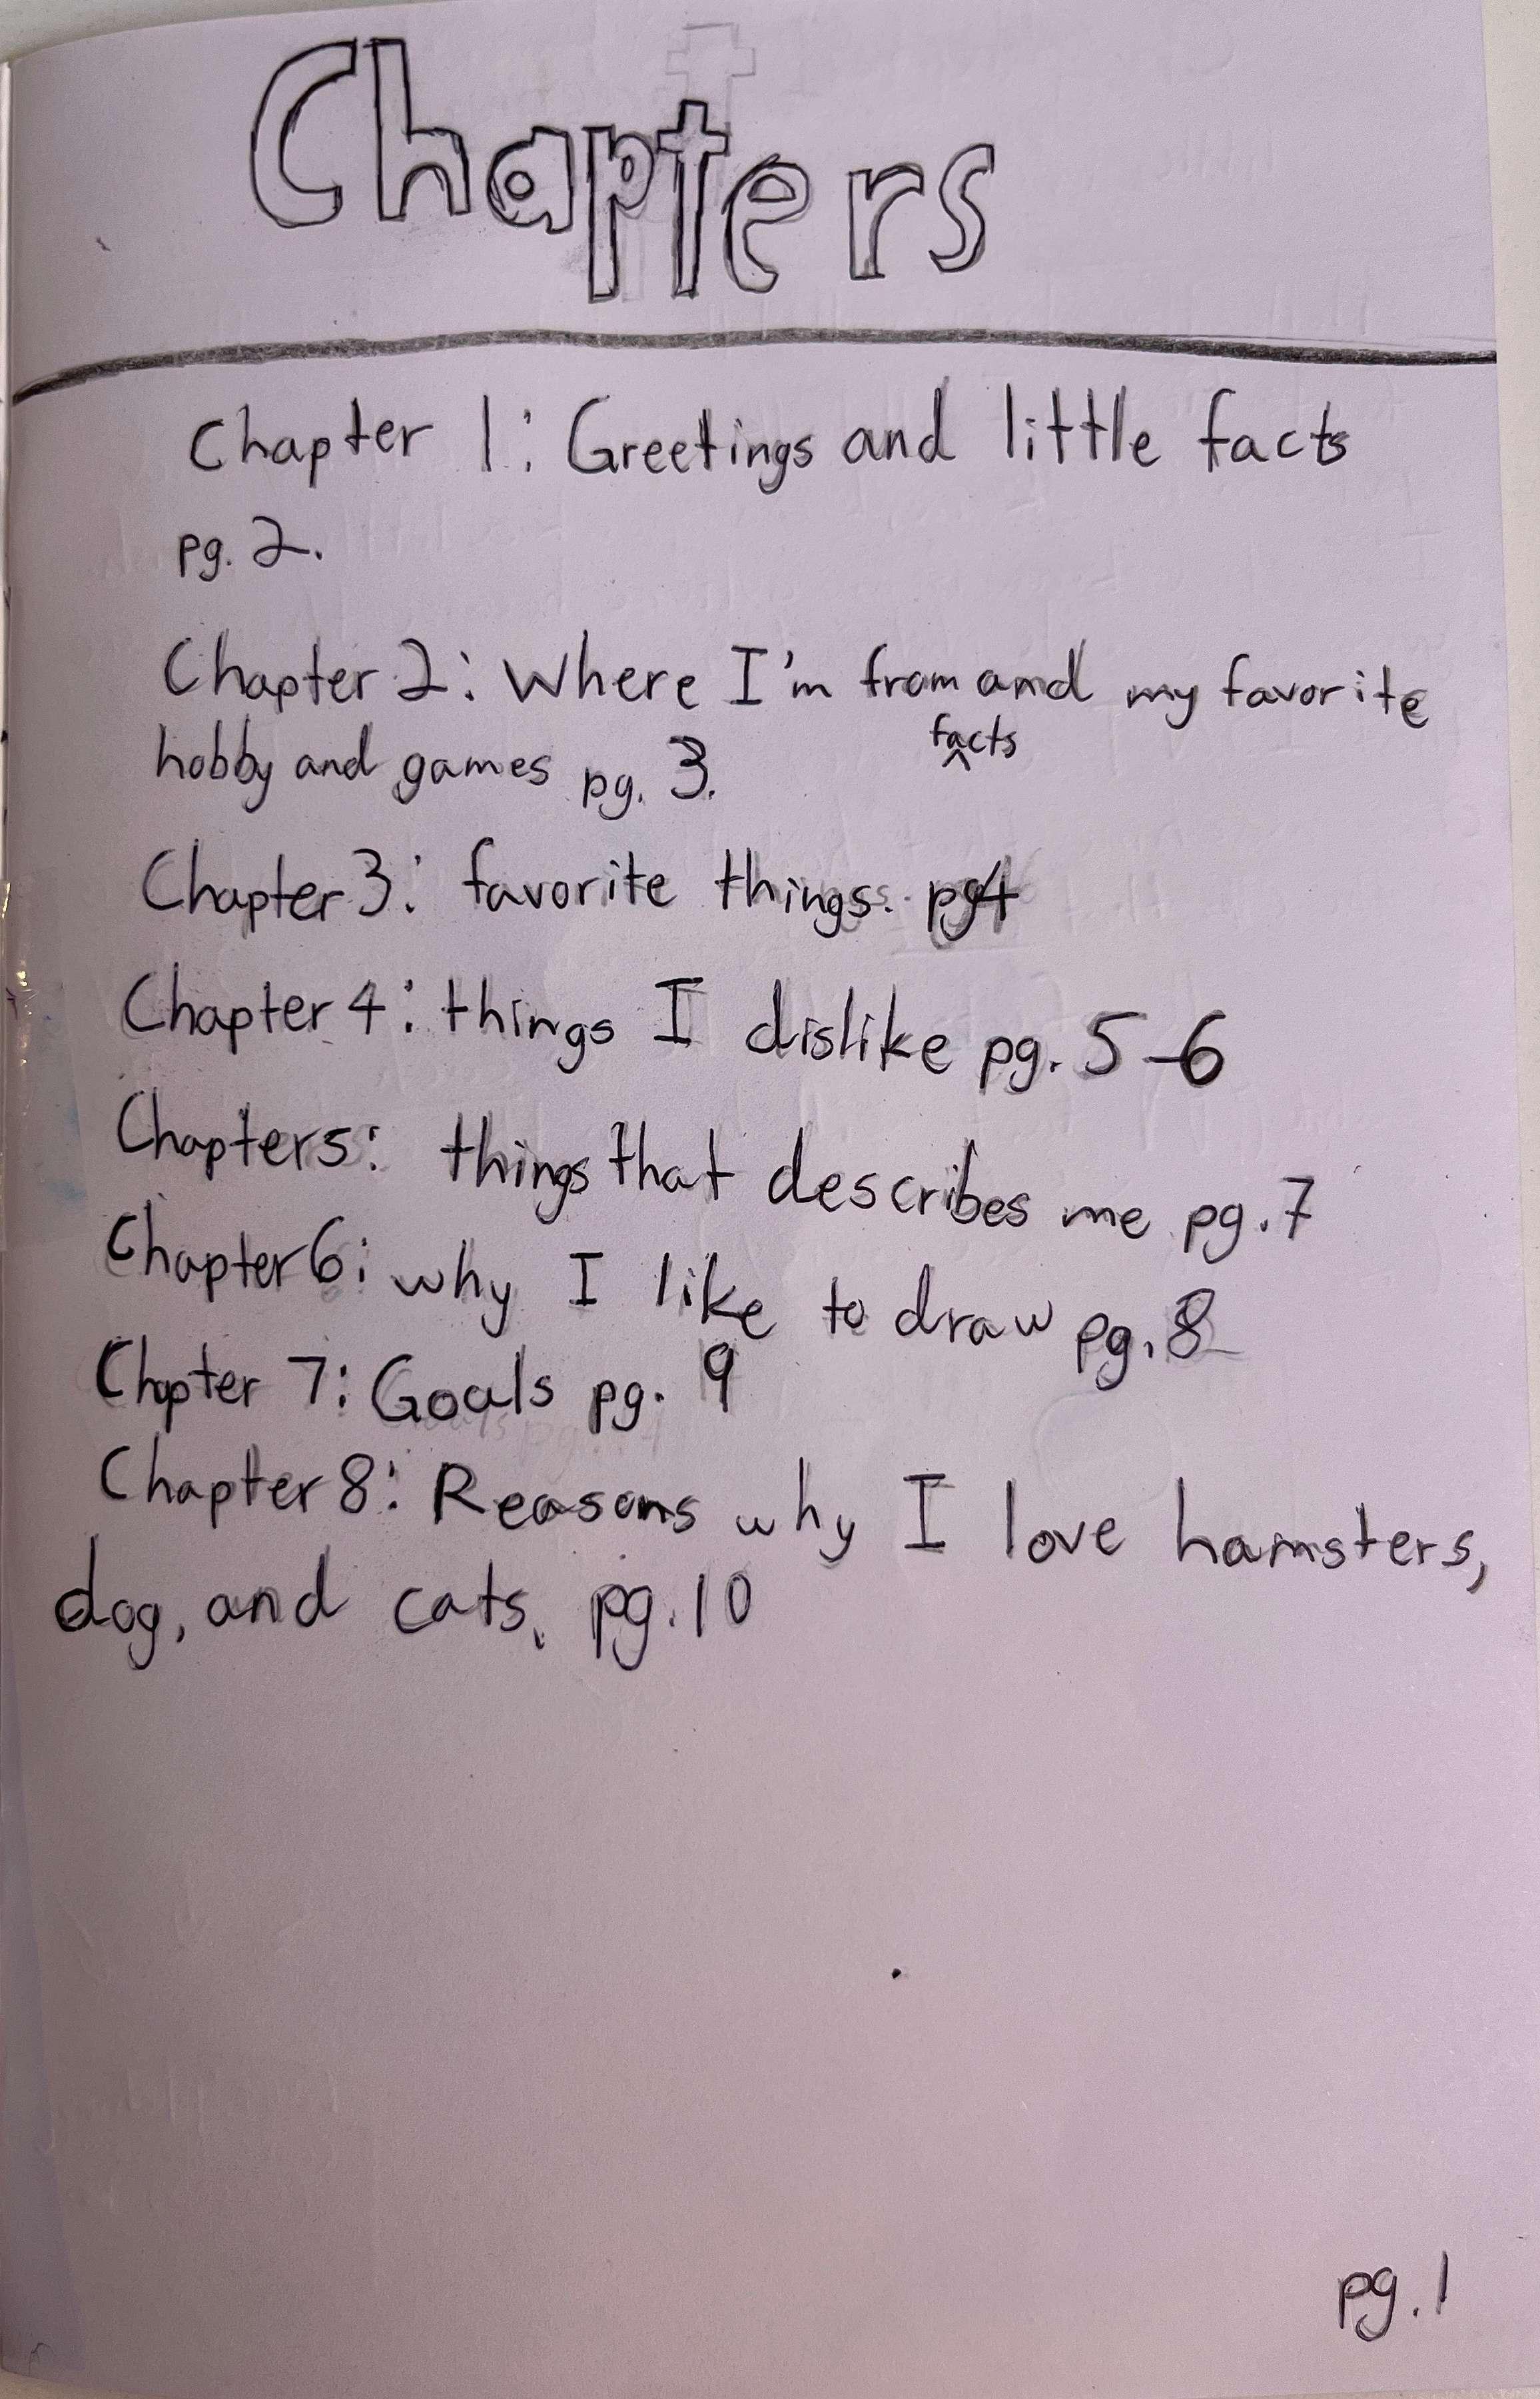 Chapters
Chapter 1: Greetings and little facts
pg. 2.
Chapter 2: Where I'm from and my favorite
facts
hobby and games pg. 3.
Chapter 3: favorite things. pg4
Chapter 4: things I dislike pg. 5-6
Chapter5: things that describes me pg.7
Chapter6: why I like to draw pg. 8
Chapter 7: Goals pg. 9
Chapter 8: Reasons why I love hamsters,
dog, and cats, pg.10
pg.1